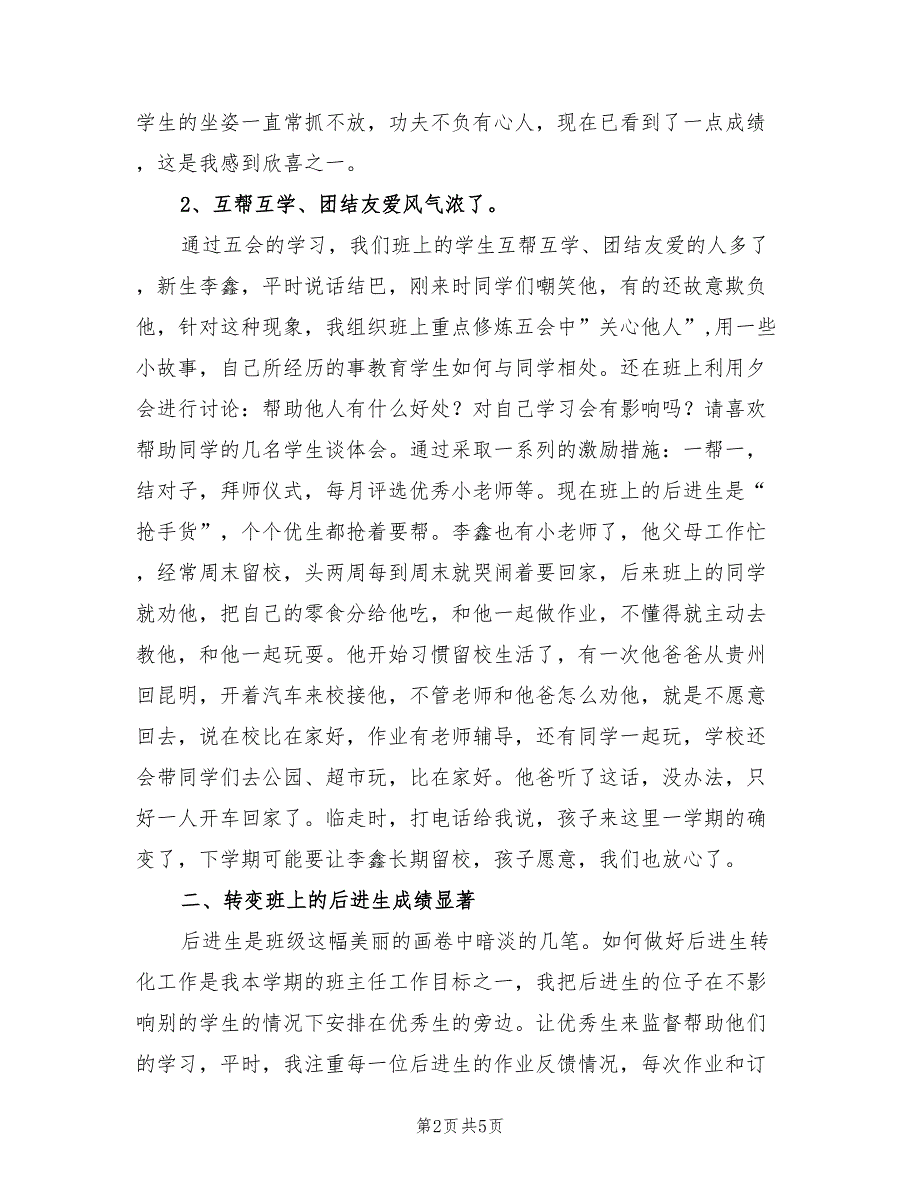 学生的坐姿一直常抓不放，功夫不负有心人，现在已看到了一点成绩
，这是我感到欣喜之一。
2、互帮互学、团结友爱风气浓了。
通过五会的学习，我们班上的学生互帮互学、团结友爱的人多了
，新生李鑫，平时说话结巴，刚来时同学们嘲笑他，有的还故意欺负
他，针对这种现象，我组织班上重点修炼五会中”关心他人”,用一些
小故事，自己所经历的事教育学生如何与同学相处。还在班上利用夕
会进行讨论：帮助他人有什么好处？对自己学习会有影响吗？请喜欢
帮助同学的几名学生谈体会。通过采取一系列的激励措施：一帮一，
结对子，拜师仪式，每月评选优秀小老师等。现在班上的后进生是“
抢手货”，个个优生都抢着要帮。李鑫也有小老师了，他父母工作忙
，经常周末留校，头两周每到周末就哭闹着要回家，后来班上的同学
就劝他，把自己的零食分给他吃，和他一起做作业，不懂得就主动去
教他，和他一起玩耍。他开始习惯留校生活了，有一次他爸爸从贵州
回昆明，开着汽车来校接他，不管老师和他爸怎么劝他，就是不愿意
回去，说在校比在家好，作业有老师辅导，还有同学一起玩，学校还
会带同学们去公园、超市玩，比在家好。他爸听了这话，没办法，只
好一人开车回家了。临走时，打电话给我说，孩子来这里一学期的确
变了，下学期可能要让李鑫长期留校，孩子愿意，我们也放心了。
二、转变班上的后进生成绩显著
后进生是班级这幅美丽的画卷中暗淡的几笔。如何做好后进生转
化工作是我本学期的班主任工作目标之一，我把后进生的位子在不影
响别的学生的情况下安排在优秀生的旁边。让优秀生来监督帮助他们
的学习，平时，我注重每一位后进生的作业反馈情况，每次作业和订
第2页 共5页